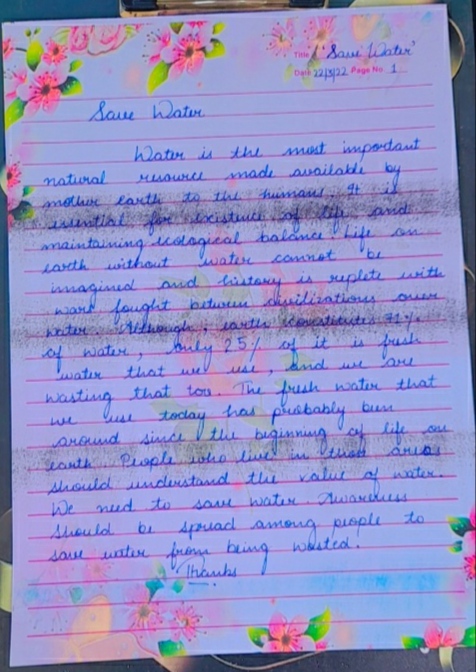 Title 'Save Water'
Date 22/3/22 Page No 1
Save Water
Water is the most important
natural resource made available by
mother earth to the humans. It is
essential for existence of life and
maintaining ecological balance. Life on
earth without water cannot be
imagined and history is replete with
wars fought between civilizations over
water. Although, earth constitutes 71%
of water, only 25% of it is fresh
water that we use, and we are
wasting that too. The fresh water that
we use today has probably been
around since the beginning of life on
earth. People who live in areas
should understand the value of water.
We need to save water. Awareness
should be spread among people to
save water from being wasted.
Thanks